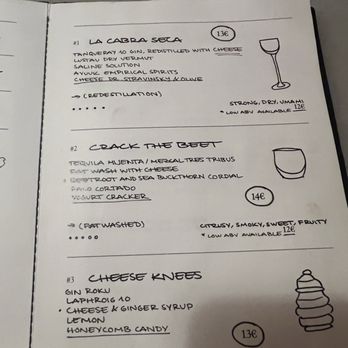 #1 LA CABRA SECA
13€
TANQUERAY 10 GIN, REDISTILLED WITH CHEESE
LUSTAU DRY VERMUT
SALINE SOLUTION
AYUUK EMPIRICAL SPIRITS
CHEESE DR. STRAVINSKY & OLIVE
→ (REDESTILLATION)
STRONG, DRY, UMAMI
* LOW ABV AVAILABLE 12€
#2 CRACK THE BEET
TEQUILA MIJENTA / MEZCAL TRES TRIBUS
FAT WASH WITH CHEESE
BEETROOT AND SEA BUCKTHORN CORDIAL
PALO CORTADO
YOGURT CRACKER
14€
→ (FATWASHED)
CITRUSY, SMOKY, SWEET, FRUITY
* LOW ABV AVAILABLE 12€
#3 CHEESE KNEES
GIN ROKU
LAPHROIG 10
• CHEESE & GINGER SYRUP
LEMON
HONEYCOMB CANDY
13€